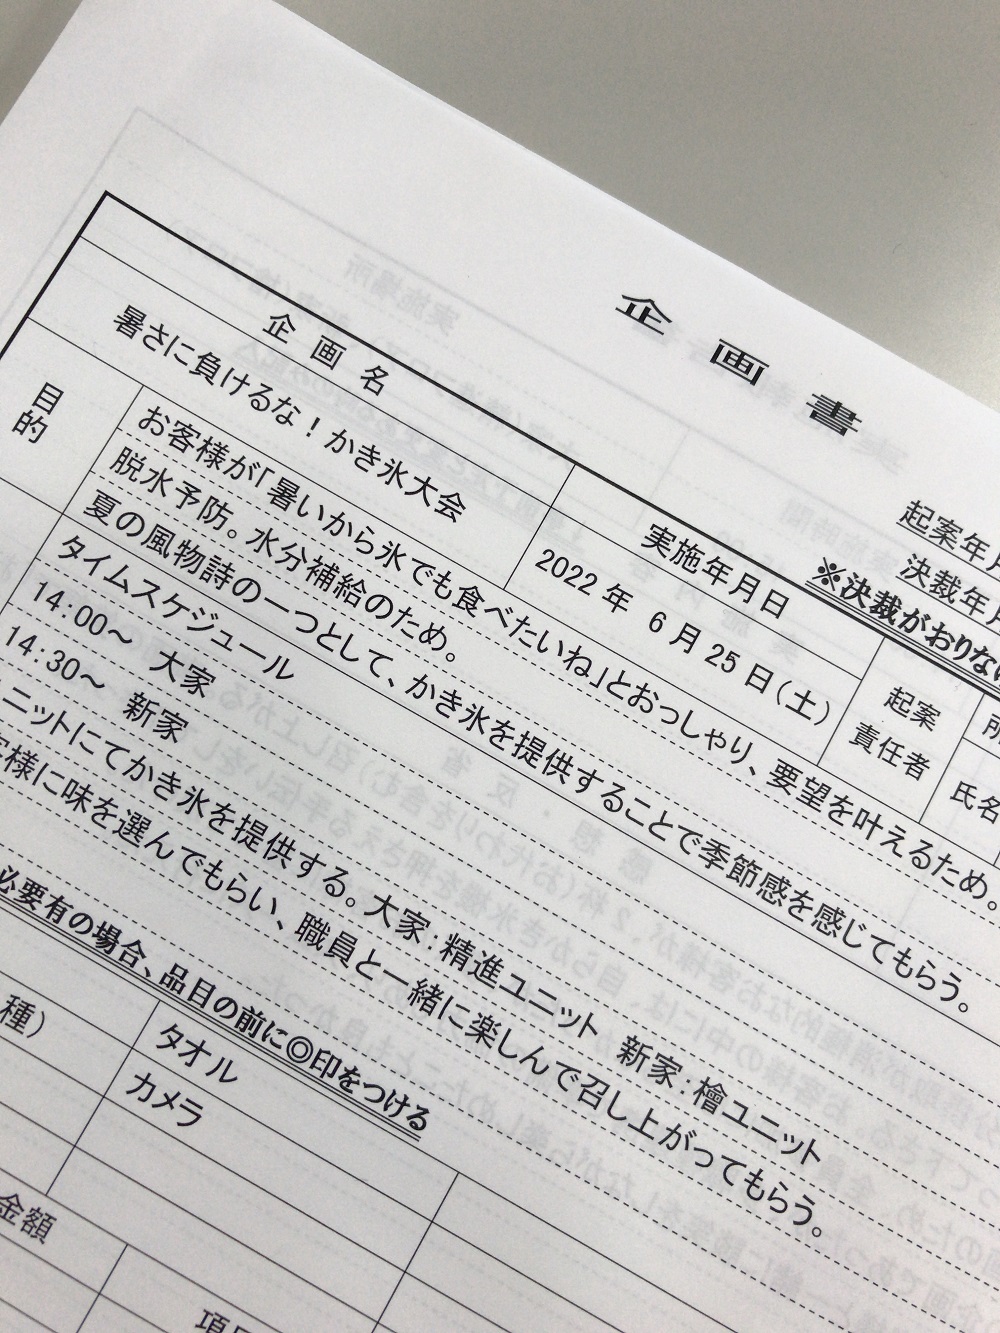 企画書
起案年月
決裁年月
※決裁がおりない
企画名
実施年月日
起案
責任者
氏名
暑さに負けるな！かき氷大会
2022年 6月25日(土)
目的
お客様が「暑いから氷でも食べたいね」とおっしゃり、要望を叶えるため。
脱水予防。水分補給のため。
夏の風物詩の一つとして、かき氷を提供することで季節感を感じてもらう。
タイムスケジュール
14:00～ 大家
14:30～ 新家
ニットにてかき氷を提供する。大家：精進ユニット 新家：檜ユニット
客様に味を選んでもらい、職員と一緒に楽しんで召し上がってもらう。
必要有の場合、品目の前に◎印をつける
種）
タオル
カメラ
金額